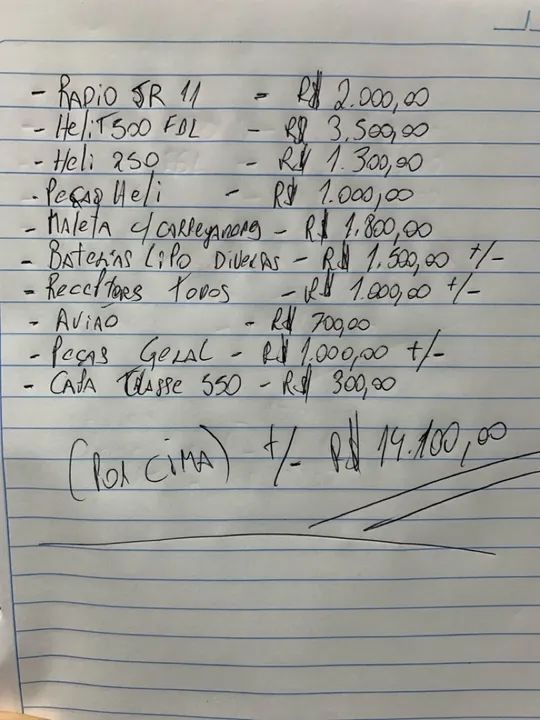 - RADIO JR 11 - R$ 2.000,00
- Heli T500 FBL - R$ 3.500,00
- Heli 250 - R$ 1.300,00
- Peças Heli - R$ 1.000,00
- MALETA c/ CARREGADORES - R$ 1.800,00
- BATERIAS LIPO DIVERSAS - R$ 1.500,00 +/-
- RECEPTORES TODOS - R$ 1.000,00 +/-
- AVIÃO - R$ 700,00
- PEÇAS GERAL - R$ 1.000,00 +/-
- CAPA CLASSE 550 - R$ 300,00
(POR CIMA) +/- R$ 14.100,00